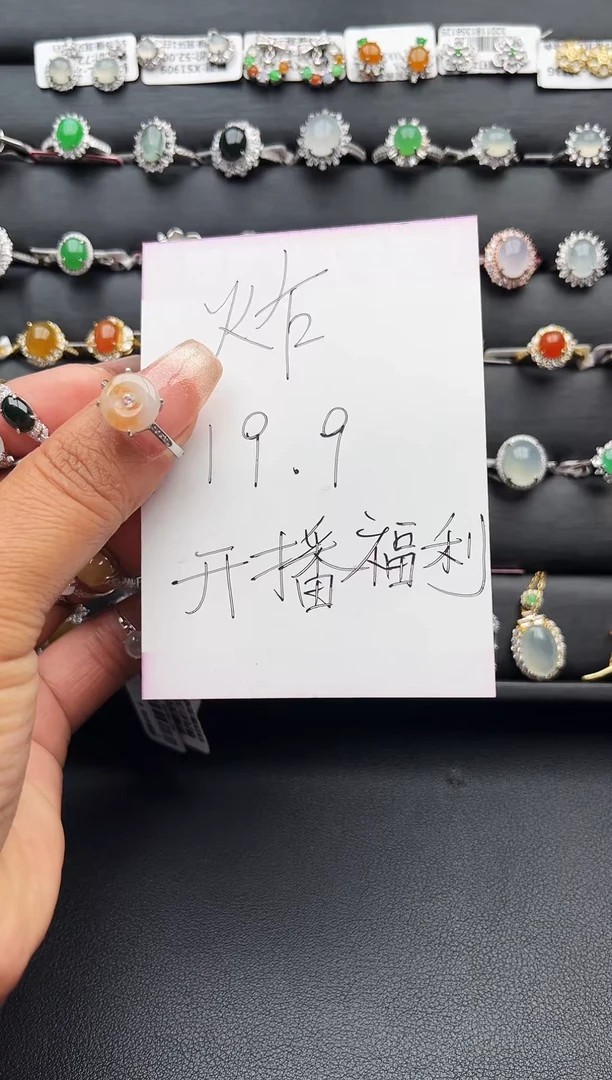 炸
19.9
开播福利